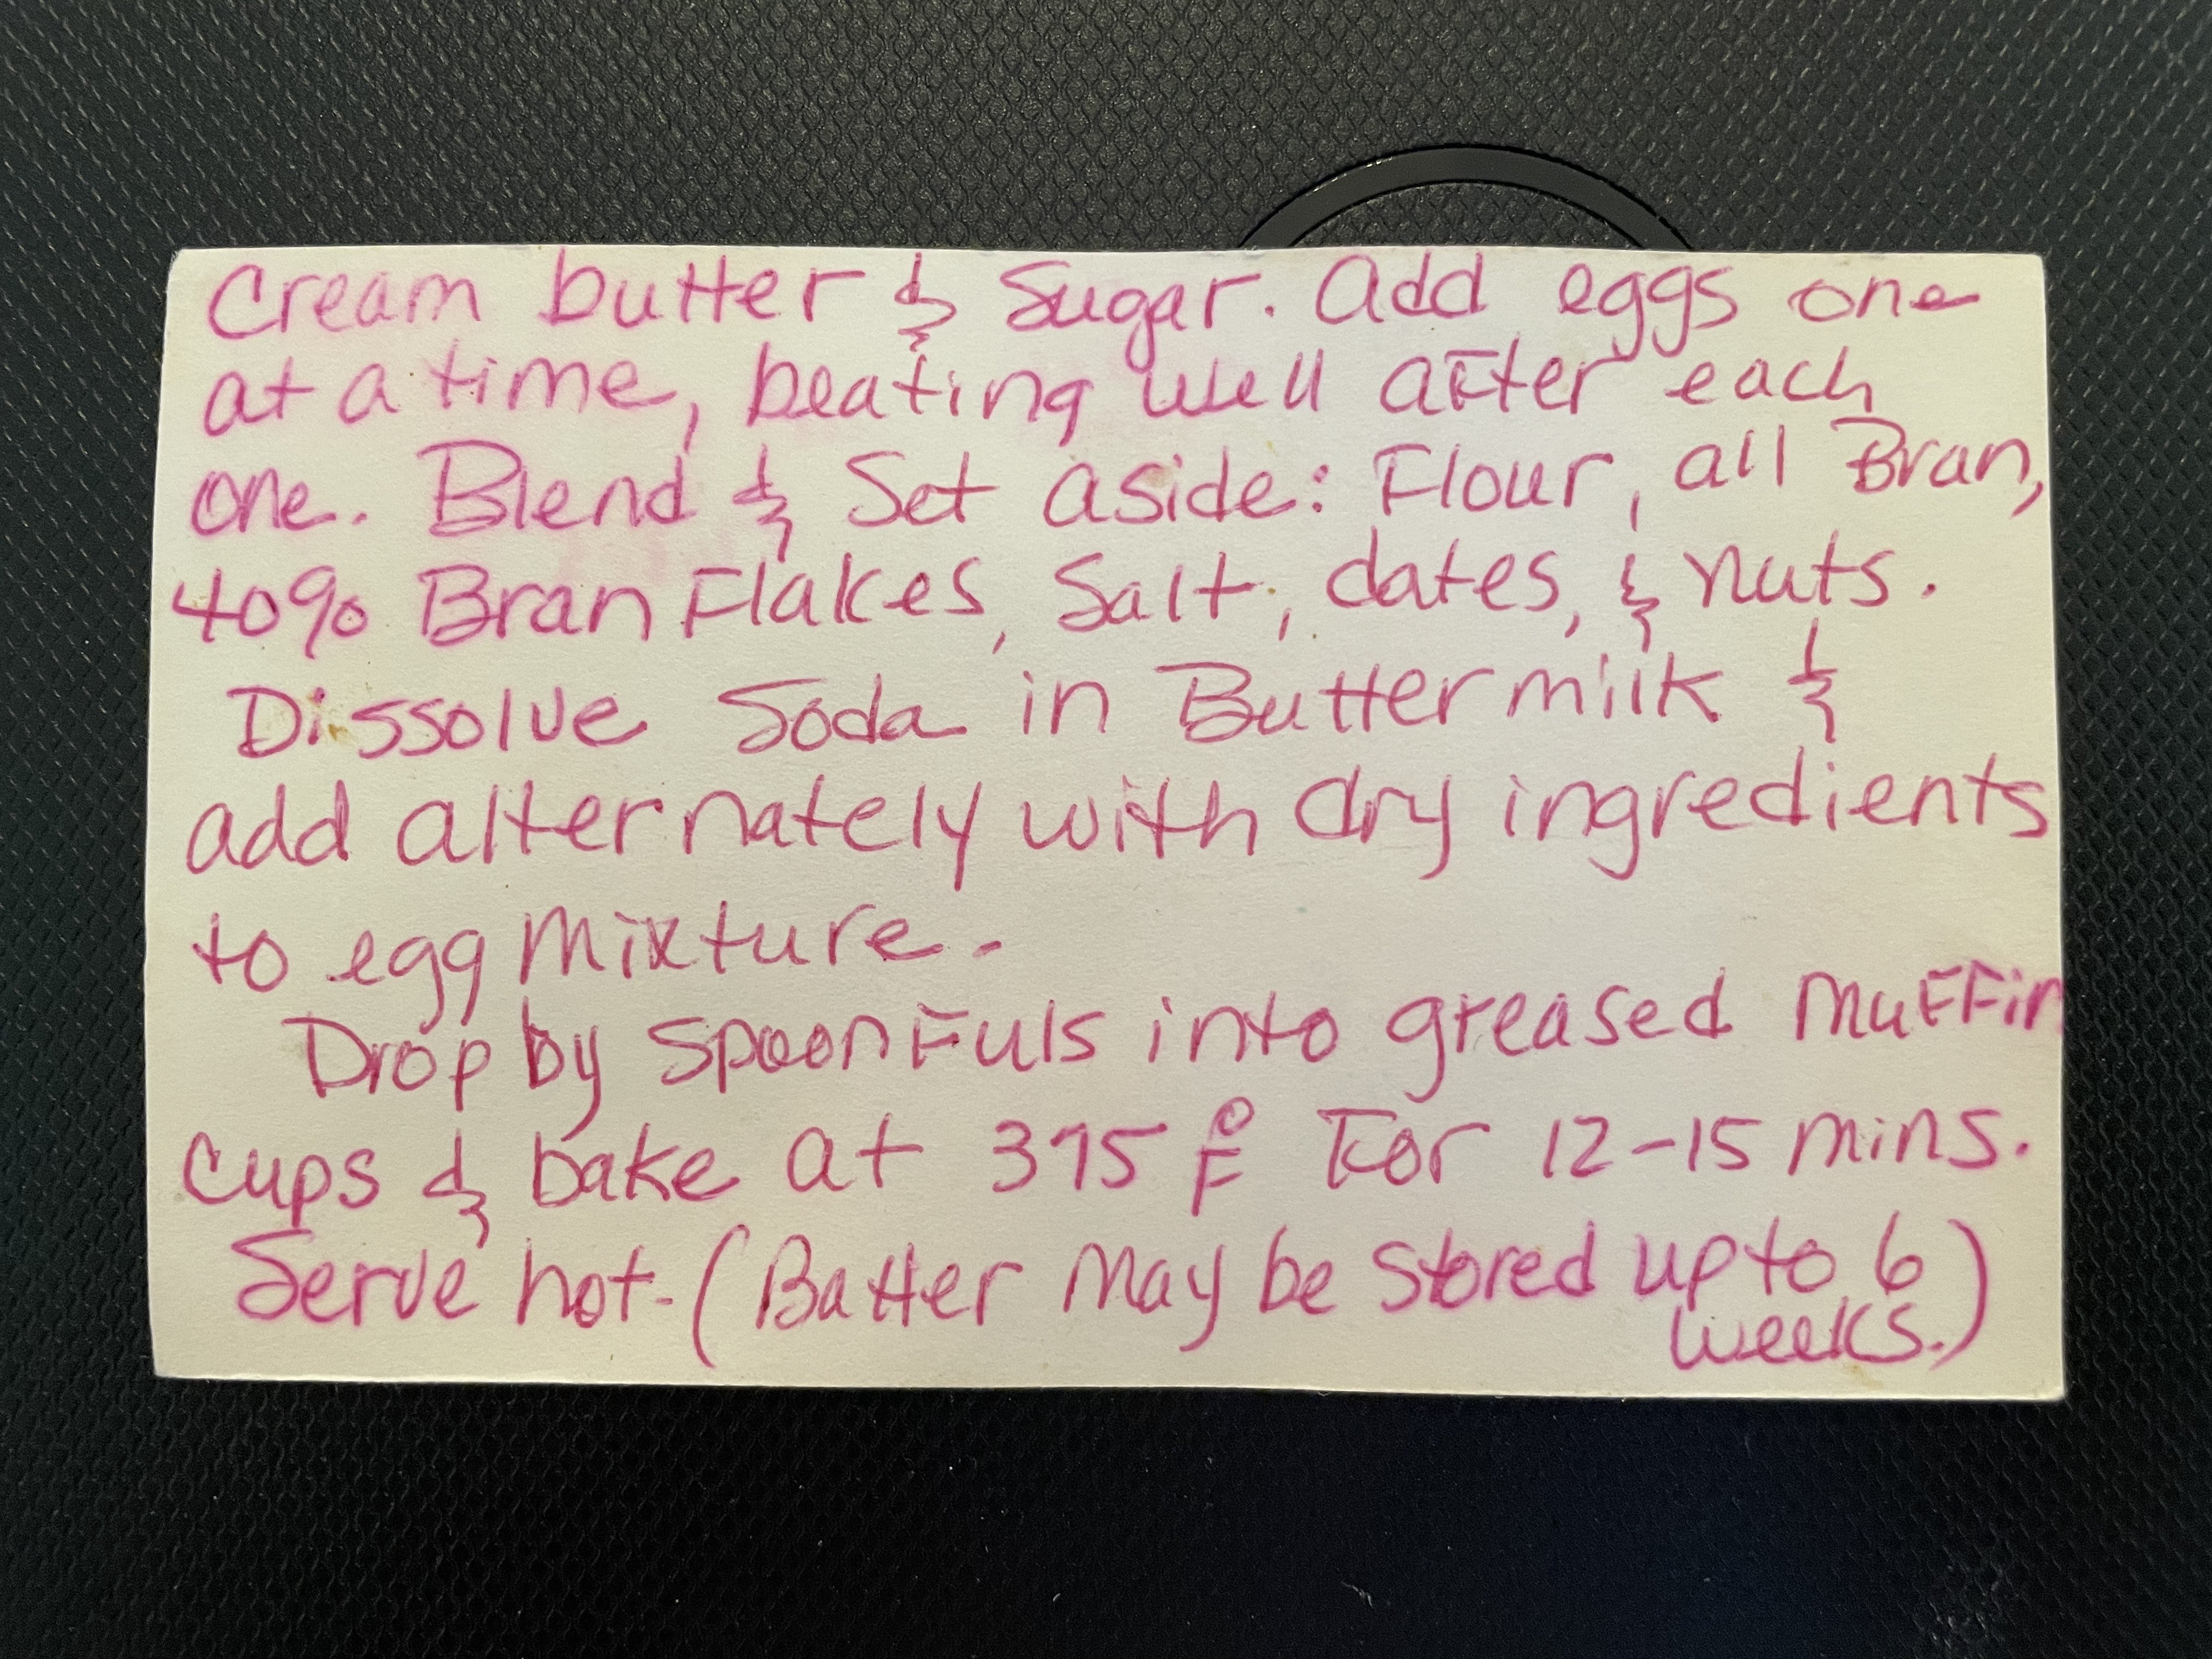 Cream butter & Sugar. Add eggs one
at a time, beating well after each
one. Blend & Set aside: Flour, all Bran,
40% Bran Flakes, Salt, dates, & nuts.
Dissolve Soda in Buttermilk &
add alternately with dry ingredients
to egg mixture.
Drop by spoonfuls into greased muffin
cups & bake at 375 °F for 12-15 mins.
Serve hot. (Batter may be stored up to 6
weeks.)